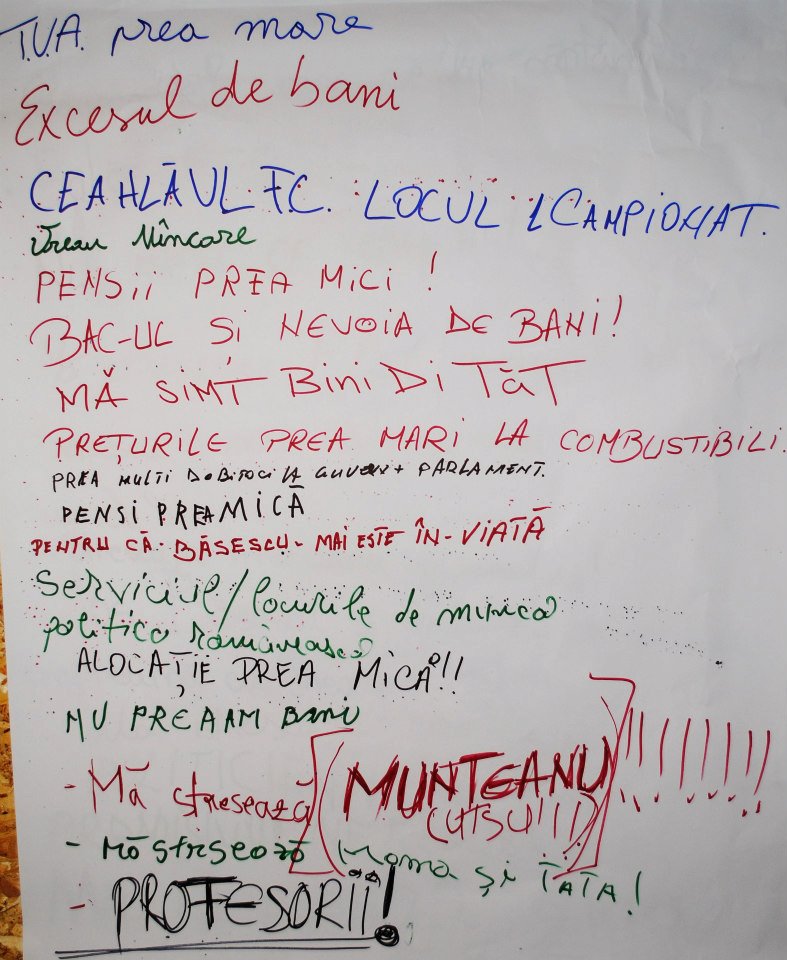 T.V.A. prea mare
Excesul de bani
CEAHLĂUL F.C. LOCUL 1 CAMPIONAT.
Vreau Mîncare
PENSII PREA MICI !
BAC-UL ȘI NEVOIA DE BANI!
MĂ SIMT BiNi Di TăT
PREȚURILE PREA MARI LA COMBUSTIBILI.
PREA MULTI DOBITOCI LA GUVERN + PARLAMENT.
PENSI PREA MICĂ
PENTRU CĂ - BĂSESCU - MAI ESTE ÎN - VIATĂ
Serviciul/locurile de munca
politica românească
ALOCAȚIE PREA MICĂ!!
NU PREA AM BANI
- Mă stresează [MUNTEANU]!!!!!!!
- Mă strsează Mama și TATA!
- PROFESORII!